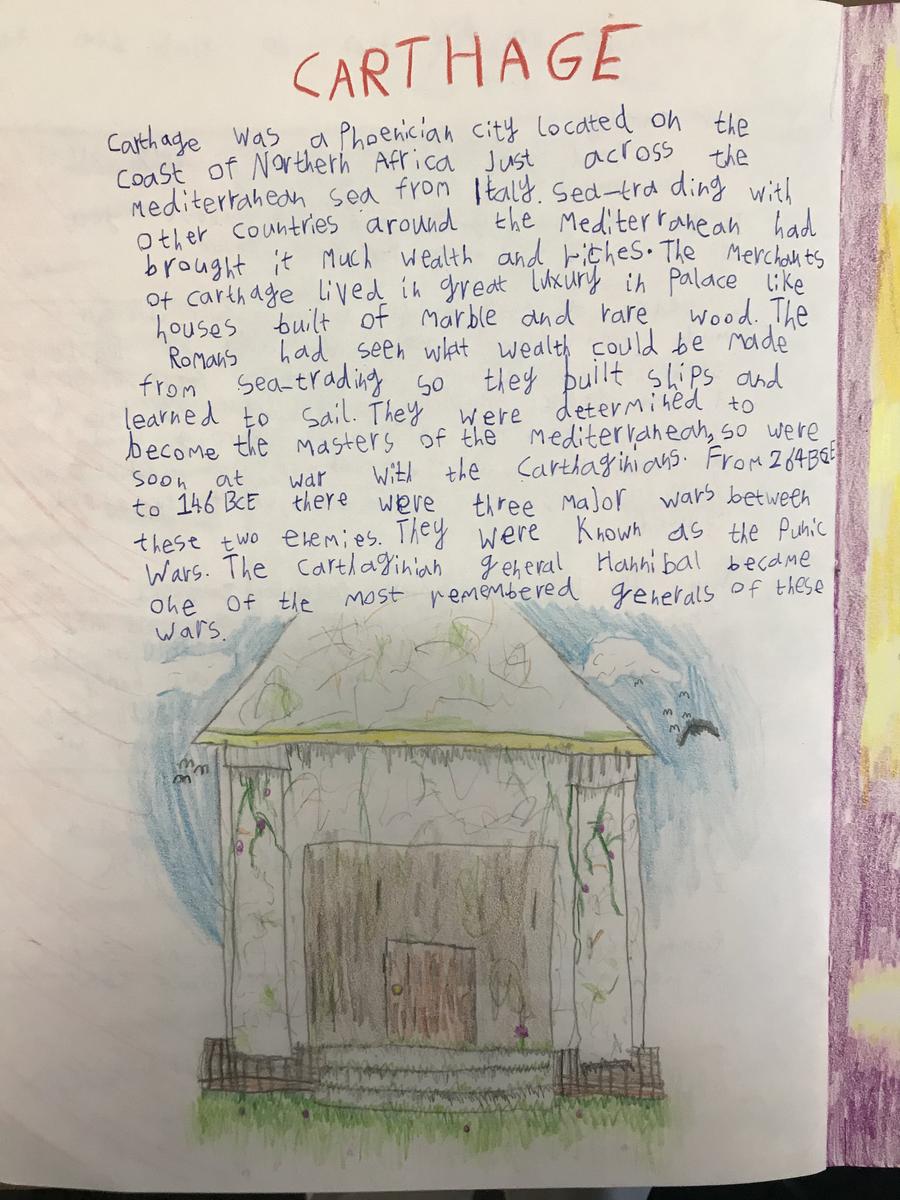 CARTHAGE
Carthage was a Phoenician city located on the
coast of Northern Africa Just across the
mediterranean sea from Italy. sea-trading with
other countries around the Mediterranean had
brought it much wealth and riches. The Merchants
of carthage lived in great luxury in palace like
houses built of marble and rare wood. The
Romans had seen what wealth could be made
from sea-trading so they built ships and
learned to sail. They were determined to
become the masters of the mediterranean, so were
soon at war with the Carthaginians. From 264BCE
to 146 BCE there were three major wars between
these two enemies. They were Known as the Punic
Wars. The Carthaginian general Hannibal became
one of the most remembered generals of these
wars.